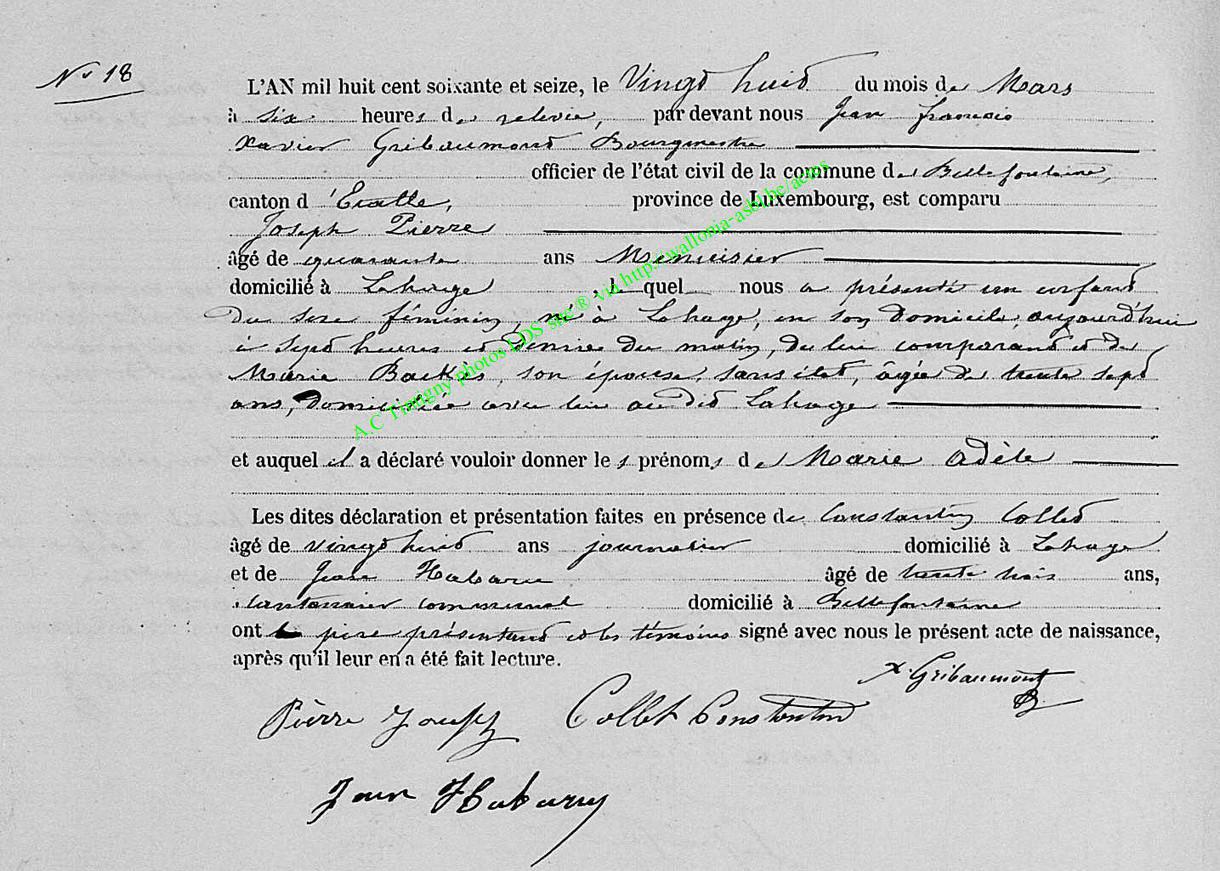 No 18
L'AN mil huit cent soixante et seize, le Vingt huit du mois de Mars
à six heures de relevée, par devant nous Jean françois
Xavier Gribaumont Bourgmestre
officier de l'état civil de la commune de Bellefontaine,
canton d'Etalle, province de Luxembourg, est comparu
Joseph Pierre
âgé de quarante ans Menuisier
domicilié à Lahage, le quel nous a présenté un enfant
du sexe féminin, né à Lahage, en son domicile, aujourd'hui
à sept heures et demie du matin, de lui comparant et de
Marie Backès, son épouse, sans état, âgée de trente sept
ans, domiciliée avec lui au dit Lahage
et auquel il a déclaré vouloir donner les prénoms de Marie Adèle
Les dites déclaration et présentation faites en présence de Constantin Collet
âgé de vingt huit ans journalier domicilié à Lahage
et de Jean Habaru âgé de trente trois ans,
cantonnier communal domicilié à Bellefontaine
ont le père présentant et les témoins signé avec nous le présent acte de naissance,
après qu'il leur en a été fait lecture.
X Gribaumont
Pièrre Joseph Collet Constantin
Jean Habaru
A.C Tintigny photos LDS site ® via http://wallonia-asbl.be/actes